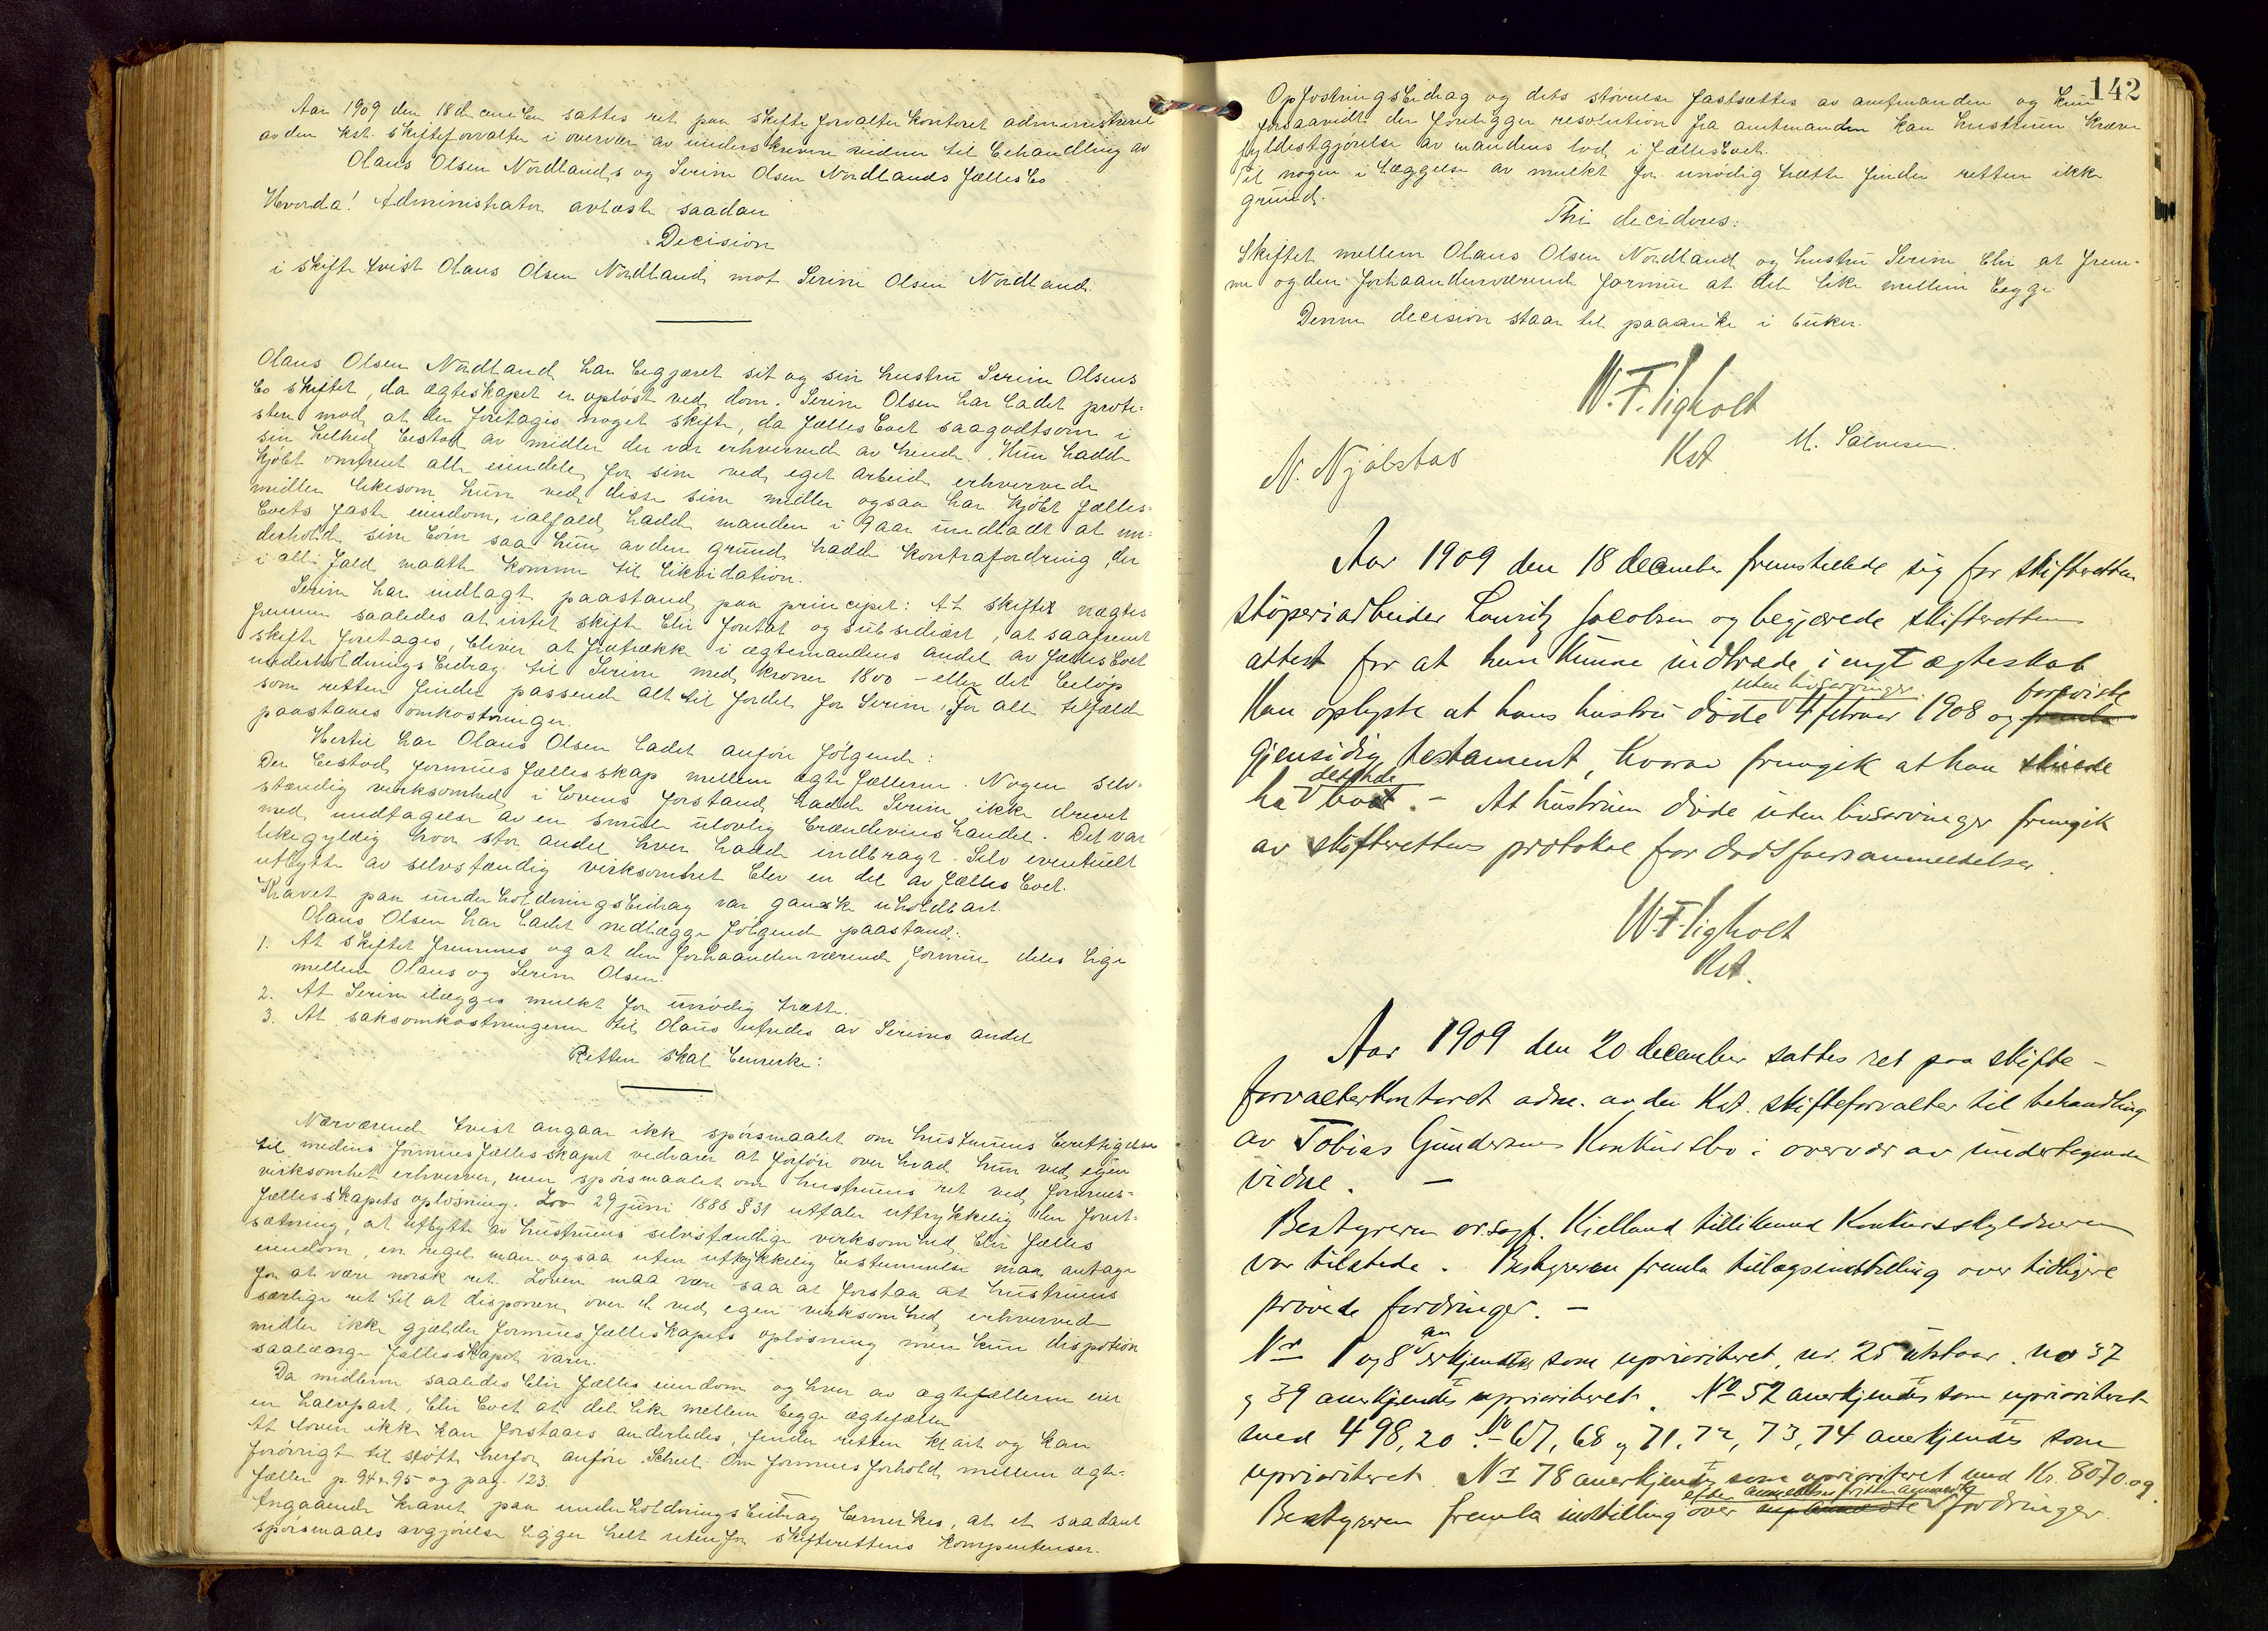 Aar 1909 den 18 december sattes ret paa skifteforvalterkontoret administreret
av den kst. skifteforvalter i overvær av underskrevne vidner til behandling av
Olaus Olsen Nordlands og Serine Olsen Nordlands fællesbo
Hvorda! Administrator avlæste saadan
Decision
i skiftetvist Olaus Olsen Nordland mot Serine Olsen Nordland.
Olaus Olsen Nordland har begjæret sit og sin hustru Serine Olsens
bo skiftet, da ægteskapet er opløst ved dom. Serine Olsen har ladet prote-
stere mod, at der foretages noget skifte, da fællesboet saagodtsom i
sin helhed bestod av midler der var erhvervede av hende. Hun hadde
kjøbt omtrent alle eiendele for sine ved eget arbeide erhvervede
midler likesom hun ved disse sine midler ogsaa har kjøbt fælles-
boets faste eiendom, ialfald hadde manden i 9 aar undladt at un-
derholde sine børn saa hun av den grund hadde kontrafordring, der
i alle fald maatte komme til likvidation.
Serine har indlagt paastand paa principalt: At skiftet nægtes
fremme saaledes at intet skifte blir foretat og subsidiært, at saafremt
skifte foretages, bliver at fratrække i ægtemandens andel av fællesboet
underholdningsbidrag til Serine med kroner 1800 – eller det beløp
som retten finder passende alt til fordel for Serine. For alle tilfælde
paastaaes omkostninger.
Hertil har Olaus Olsen ladet anføre følgende:
Der bestod formuesfællesskap mellem ægtefællerne. Nogen selv-
stændig virksomhed i lovens forstand hadde Serine ikke drevet
med undtagelse av en smule ulovlig brændevinshandel. Det var
likegyldig hvor stor andel hver hadde indbragt. Selv eventuelt
utbytte av selvstændig virksomhet blev en del av fællesboet.
Kravet paa underholdningsbidrag var ganske uholdbart.
Olaus Olsen har ladet nedlægge følgende paastand:
1. At skiftet fremmes og at den forhaandenværende formue deles lige
mellem Olaus og Serine Olsen.
2. At Serine ilægges mulkt for unødig trætte.
3. At saksomkostningerne til Olaus utredes av Serines andel
Retten skal bemerke:
Nærværende tvist angaar ikke spørsmaalet om hustruens berettigelse
til medens formuesfællesskapet vedvarer at forføie over hvad hun ved egen
virksomhet erhverver, men spørsmaalet om hustruens ret ved formues-
fællesskapets opløsning. Lov 29 juni 1888 § 31 uttaler uttrykkelig den forut-
sætning, at utbytte av hustruens selvstændige virksomhed blir fælles
eiendom, en regel man ogsaa uten uttrykkelig bestemmelse maa antage
for at være norsk ret. Loven maa være saa at forstaa at hustruens
særlige ret til at disponere over de ved egen virksomhed erhvervede
midler ikke gjælder formuesfælleskapets opløsning men kun dispotion
saalænge fællesskapet varer.
Da midlerne saaledes blir fælles eiendom og hver av ægtefællerne eier
en halvpart, blir boet at dele like mellem begge ægtefæller.
At loven ikke kan forstaaes anderledes, finder retten klart og kan
forøvrigt til støtte herfor anføre Scheel: Om formuesforhold mellem ægte-
fæller p. 94 & 95 og pag. 123.
Angaaende kravet paa underholdningsbidrag bemerkes, at et saadant
spørsmaals avgjørelse ligger helt utenfor skifterettens kompentenser.
142
Opfostringsbidrag og dets størrelse fastsættes av amtmanden og kun
forsaavidt der foreligger resolution fra amtmanden kan hustruen kræve
fyldestgjørelse av mandens lod i fællesboet.
Til nogen ilæggelse av mulkt for unødig trætte finder retten ikke
grund.
Thi decideres:
Skiftet mellem Olaus Olsen Nordland og hustru Serine blir at frem-
me og den forhaandenværende formue at dele like mellem begge
Denne decision staar til paaanke i 6 uker.
W. F. Vigholt
Kst.
M. Salvesen.
N. Njølstad
Aar 1909 den 18 december fremstillede sig for skifteretten
støperiarbeider Lauritz Jacobsen og begjærede skifterettens
attest for at han kunne indtræde i nyt ægteskab
Han oplyste at hans hustru døde uten livsarvinger 4 februar 1908 og foreviste
gjensidig testament, hvorav fremgik at han skulde
ha beholde boet. – At hustruen døde uten livsarvinger fremgik
av skifterettens protokol for dødsfaldsanmeldelser.
W. F. Vigholt
Kst.
Aar 1909 den 20 december sattes ret paa skifte-
forvalterkontoret adm. av den Kst. skifteforvalter til behandling
av Tobias Gundersens Konkursbo i overvær av undertegnede
vidne. –
Bestyreren o.r.sagf. Kielland tillikemed Konkursskyldneren
var tilstede. Bestyreren fremla tillægsindstilling over tidligere
prøvede fordringer. –
Nr 1 og 8 anerkjendtes som uprioriteret, nr. 25 utstaar. no 37
og 39 anerkjendtes uprioriteret. No 52 anerkjendtes som uprioriteret
med 498,20. No 67, 68 og 71, 72, 73, 74 anerkjendtes som
uprioriteret. No 78 anerkjendtes som uprioriteret med Kr. 8070. og
Bestyreren fremla indstilling over efter anmeldelsesfristen anmeldte fordringer.